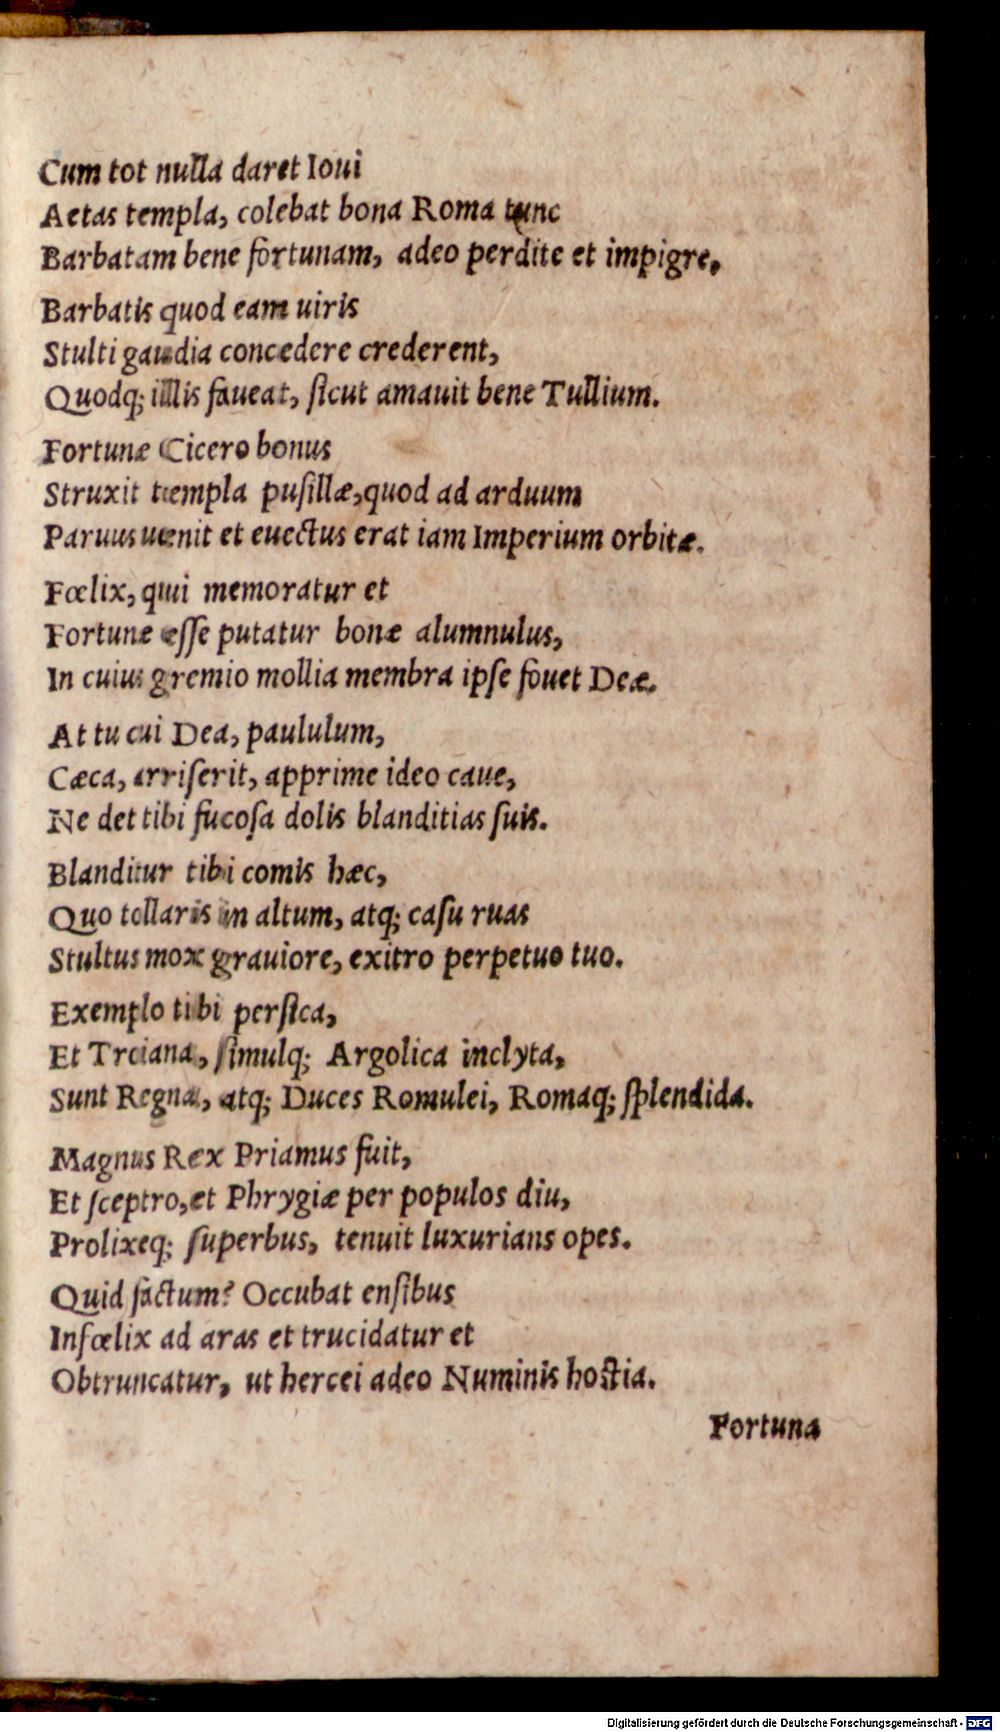 Cum tot nulla daret Ioui
Aetas templa, colebat bona Roma tunc
Barbatam bene fortunam, adeo perdite et impigre,
Barbatis quod eam uiris
Stulti gaudia concedere crederent,
Quodq; illis faueat, sicut amauit bene Tullium.
Fortunæ Cicero bonus
Struxit templa pusillæ, quod ad arduum
Paruus uenit et euectus erat iam Imperium orbitæ.
Fœlix, qui memoratur et
Fortunæ esse putatur bonæ alumnulus,
In cuius gremio mollia membra ipse fouet Deæ.
At tu cui Dea, paululum,
Cæca, arriserit, apprime ideo caue,
Ne det tibi fucosa dolis blanditias suis.
Blanditur tibi comis hæc,
Quo tollaris in altum, atq; casu ruas
Stultus mox grauiore, exitro perpetuo tuo.
Exemplo tibi persica,
Et Troiana, simulq; Argolica inclyta,
Sunt Regna, atq; Duces Romulei, Romaq; splendida.
Magnus Rex Priamus fuit,
Et sceptro, et Phrygiæ per populos diu,
Prolixeq; superbus, tenuit luxurians opes.
Quid factum? Occubat ensibus
Infœlix ad aras et trucidatur et
Obtruncatur, ut hercei adeo Numinis hostia.
Fortuna
Digitalisierung gefördert durch die Deutsche Forschungsgemeinschaft - DFG